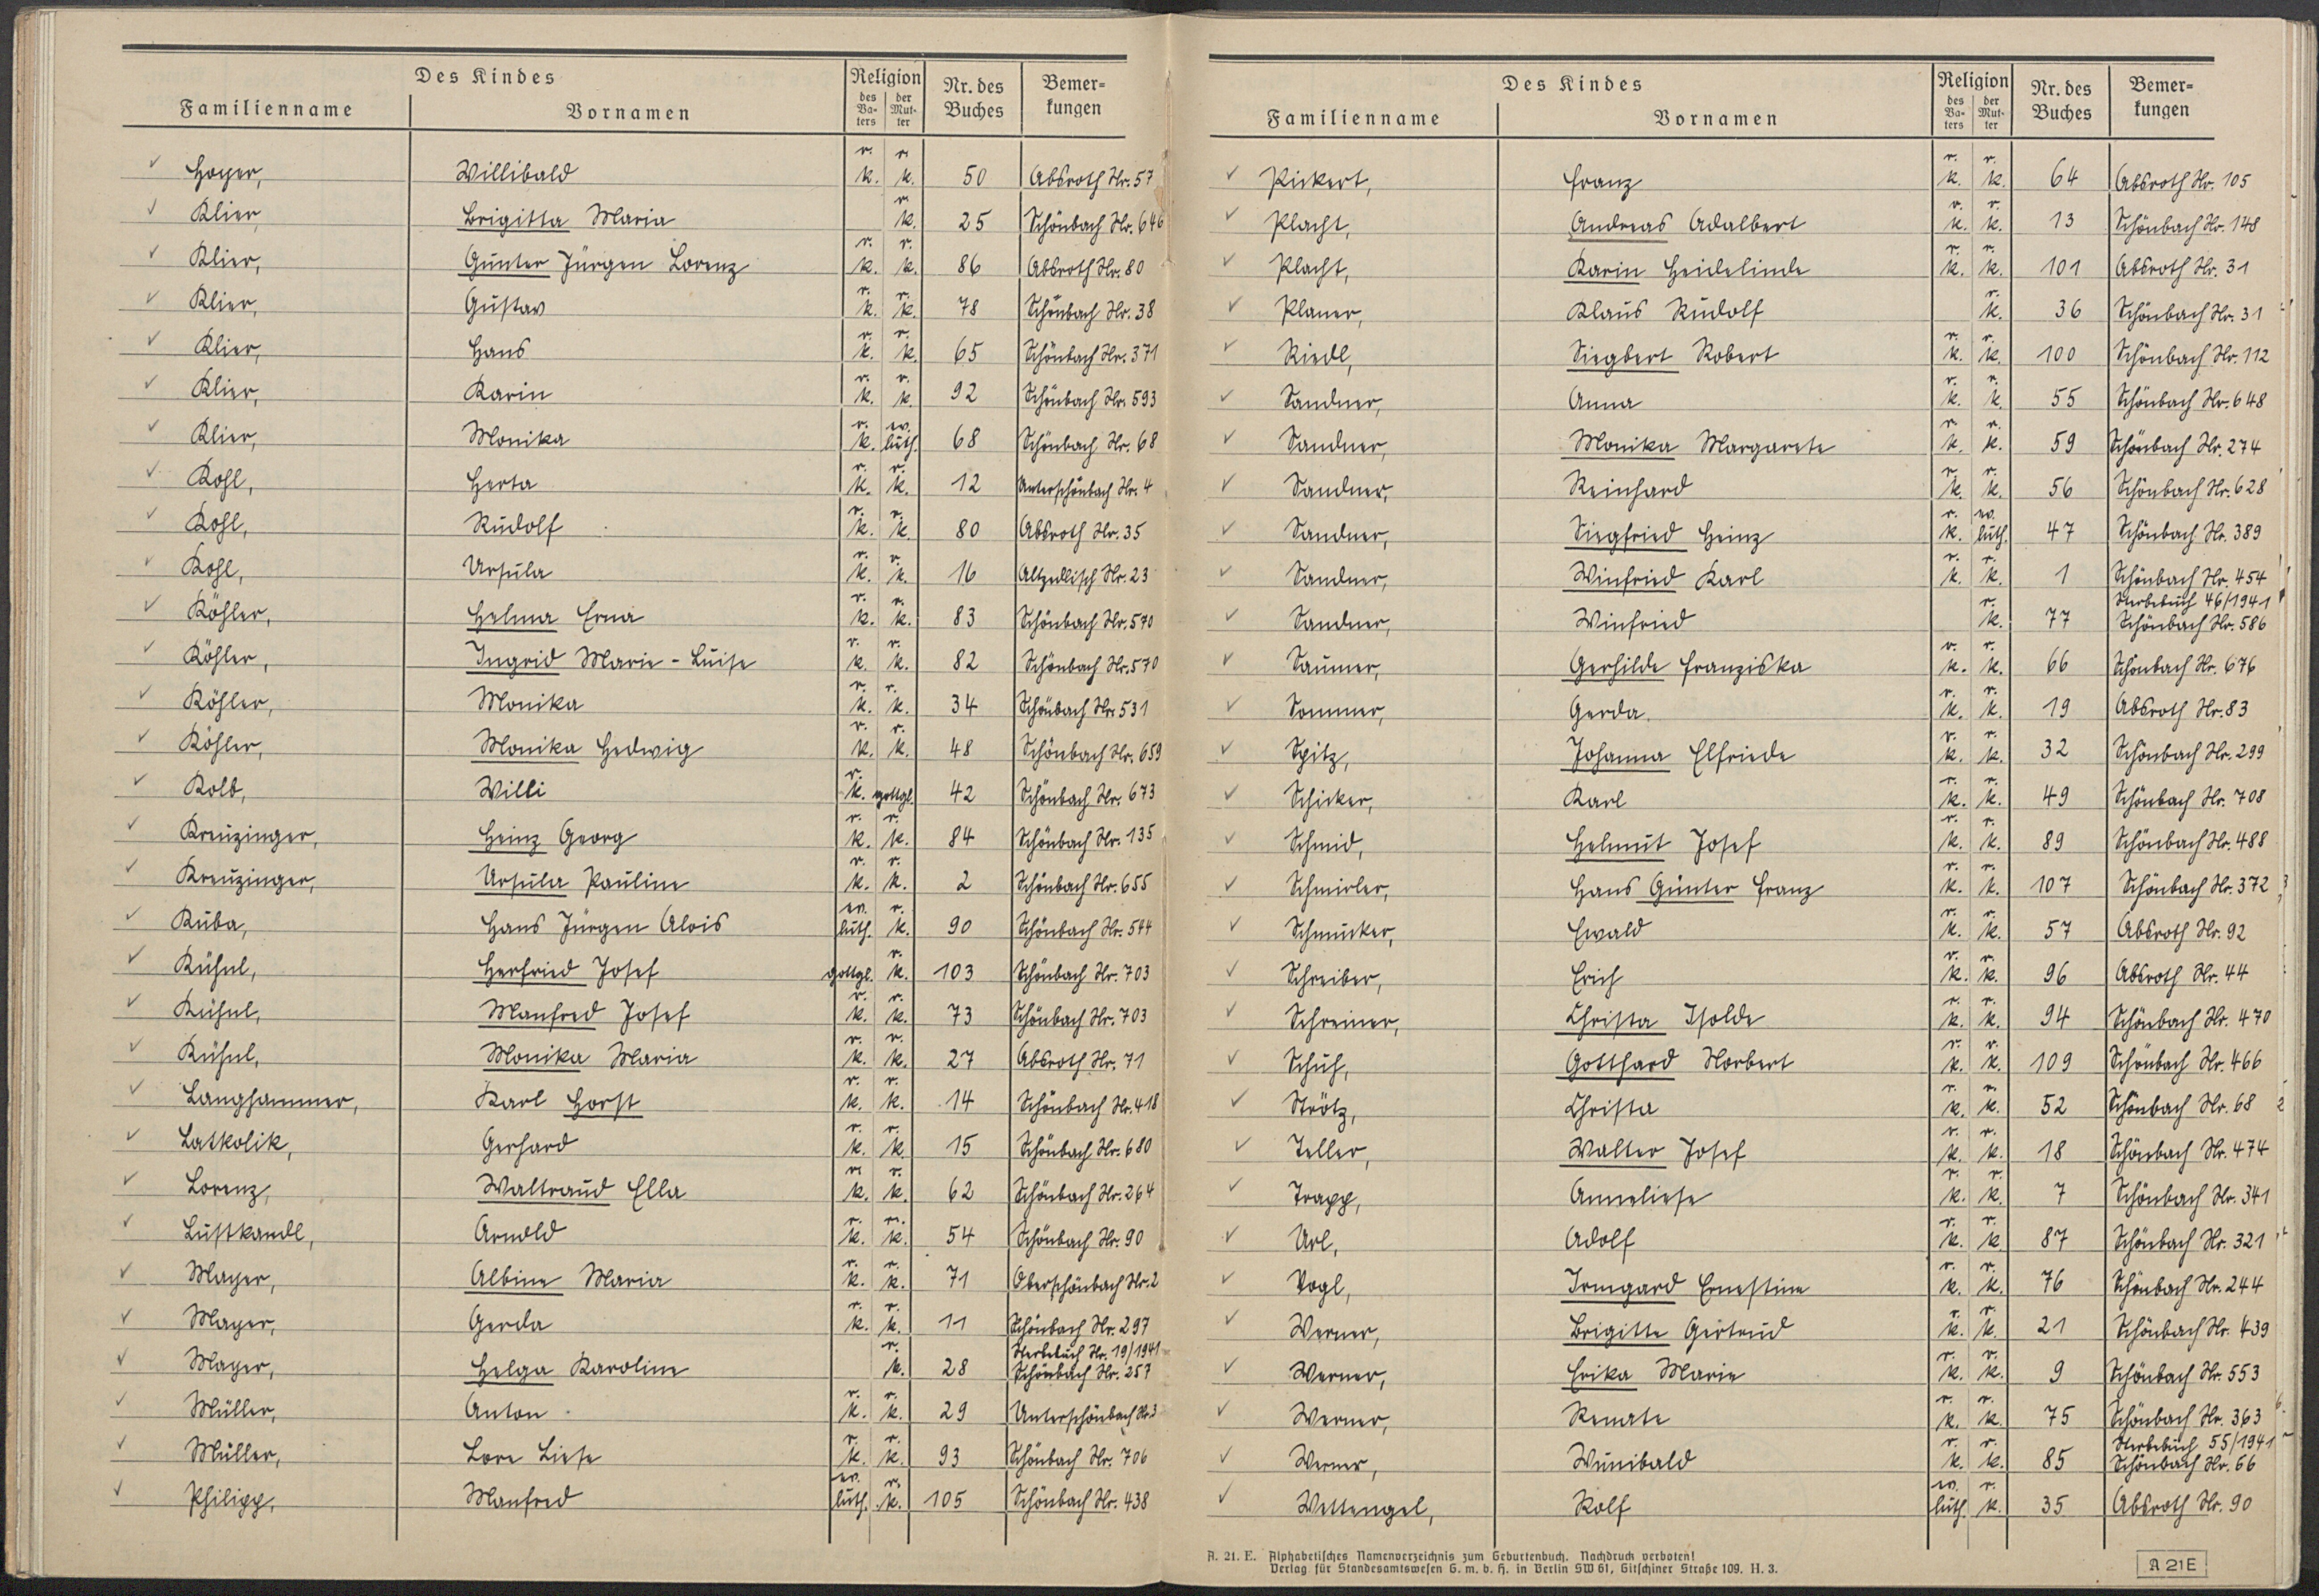 Des Kindes
Religion
Nr. des Buches
Bemer-kungen
Familienname
Vornamen
des Va-ters
der Mut-ter
Hoyer, Willibald r. k. r. k. 50 Absroth Nr. 57
Klier, Brigitta Maria r. k. 25 Schönbach Nr. 646
Klier, Günter Jürgen Lorenz r. k. r. k. 86 Absroth Nr. 80
Klier, Gustav r. k. r. k. 78 Schönbach Nr. 38
Klier, Hans r. k. r. k. 65 Schönbach Nr. 371
Klier, Karin r. k. r. k. 92 Schönbach Nr. 593
Klier, Monika r. k. ev. luth. 68 Schönbach Nr. 68
Kohl, Herta r. k. r. k. 12 Unterschönbach Nr. 4
Kohl, Rudolf r. k. r. k. 80 Absroth Nr. 35
Kohl, Ursula r. k. r. k. 16 Altzedlisch Nr. 23
Köhler, Helma Erna r. k. r. k. 83 Schönbach Nr. 570
Köhler, Ingrid Marie-Luise r. k. r. k. 82 Schönbach Nr. 570
Köhler, Monika r. k. r. k. 34 Schönbach Nr. 531
Köhler, Monika Hedwig r. k. r. k. 48 Schönbach Nr. 659
Kolb, Willi r. k. gottgl. 42 Schönbach Nr. 673
Kreuzinger, Heinz Georg r. k. r. k. 84 Schönbach Nr. 135
Kreuzinger, Ursula Pauline r. k. r. k. 2 Schönbach Nr. 655
Kuba, Hans Jürgen Alois ev. luth. r. k. 90 Schönbach Nr. 544
Kühnl, Herfried Josef gottgl. r. k. 103 Schönbach Nr. 703
Kühnl, Manfred Josef r. k. r. k. 73 Schönbach Nr. 703
Kühnl, Monika Maria r. k. r. k. 27 Absroth Nr. 71
Langhammer, Karl Horst r. k. r. k. 14 Schönbach Nr. 418
Latkolik, Gerhard r. k. r. k. 15 Schönbach Nr. 680
Lorenz, Waltraud Ella r. k. r. k. 62 Schönbach Nr. 264
Lustkandl, Arnold r. k. r. k. 54 Schönbach Nr. 90
Mayer, Albine Maria r. k. r. k. 71 Oberschönbach Nr. 2
Mayer, Gerda r. k. r. k. 11 Schönbach Nr. 297
Sterbebuch Nr. 19/1941
Mayer, Helga Karoline r. k. 28 Schönbach Nr. 257
Müller, Anton r. k. r. k. 29 Unterschönbach Nr. 3
Müller, Lore Liese r. k. r. k. 93 Schönbach Nr. 706
Philipp, Manfred ev. luth. r. k. 105 Schönbach Nr. 438
Des Kindes
Religion
Nr. des Buches
Bemer-kungen
Familienname
Vornamen
des Va-ters
der Mut-ter
Pickert, Franz r. k. r. k. 64 Absroth Nr. 105
Placht, Andreas Adalbert r. k. r. k. 13 Schönbach Nr. 148
Placht, Karin Heidelinde r. k. r. k. 101 Absroth Nr. 31
Planer, Klaus Rudolf r. k. 36 Schönbach Nr. 31
Riedl, Siegbert Robert r. k. r. k. 100 Schönbach Nr. 112
Sandner, Anna r. k. r. k. 55 Schönbach Nr. 648
Sandner, Monika Margarete r. k. r. k. 59 Schönbach Nr. 274
Sandner, Reinhard r. k. r. k. 56 Schönbach Nr. 628
Sandner, Siegfried Heinz r. k. ev. luth. 47 Schönbach Nr. 389
Sandner, Winfried Karl r. k. r. k. 1 Schönbach Nr. 454
Sterbebuch 46/1941
Sandner, Winfried r. k. 77 Schönbach Nr. 586
Saumer, Gerhilde Franziska r. k. r. k. 66 Schönbach Nr. 676
Sommer, Gerda r. k. r. k. 19 Absroth Nr. 83
Spitz, Johanna Elfriede r. k. r. k. 32 Schönbach Nr. 299
Schicker, Karl r. k. r. k. 49 Schönbach Nr. 708
Schmid, Helmut Josef r. k. r. k. 89 Schönbach Nr. 488
Schmirler, Hans Günter Franz r. k. r. k. 107 Schönbach Nr. 372
Schmucker, Ewald r. k. r. k. 57 Absroth Nr. 92
Schreiber, Erich r. k. r. k. 96 Absroth Nr. 44
Schreiner, Christa Isolde r. k. r. k. 94 Schönbach Nr. 470
Schuh, Gotthard Norbert r. k. r. k. 109 Schönbach Nr. 466
Strötz, Christa r. k. r. k. 52 Schönbach Nr. 68
Teller, Walter Josef r. k. r. k. 18 Schönbach Nr. 474
Trapp, Anneliese r. k. r. k. 7 Schönbach Nr. 341
Url, Adolf r. k. r. k. 87 Schönbach Nr. 321
Vogl, Irmgard Ernestine r. k. r. k. 76 Schönbach Nr. 244
Werner, Brigitte Gertrud r. k. r. k. 21 Schönbach Nr. 439
Werner, Erika Marie r. k. r. k. 9 Schönbach Nr. 553
Werner, Renate r. k. r. k. 75 Schönbach Nr. 363
Sterbebuch 55/1941
Werner, Wunibald r. k. r. k. 85 Schönbach Nr. 66
Wettengel, Rolf ev. luth. r. k. 35 Absroth Nr. 90
A. 21. E. Alphabetisches Namenverzeichnis zum Geburtenbuch. Nachdruck verboten!
Verlag für Standesamtswesen G. m. b. H. in Berlin SW 61, Gitschiner Straße 109. H. 3.
A 21 E